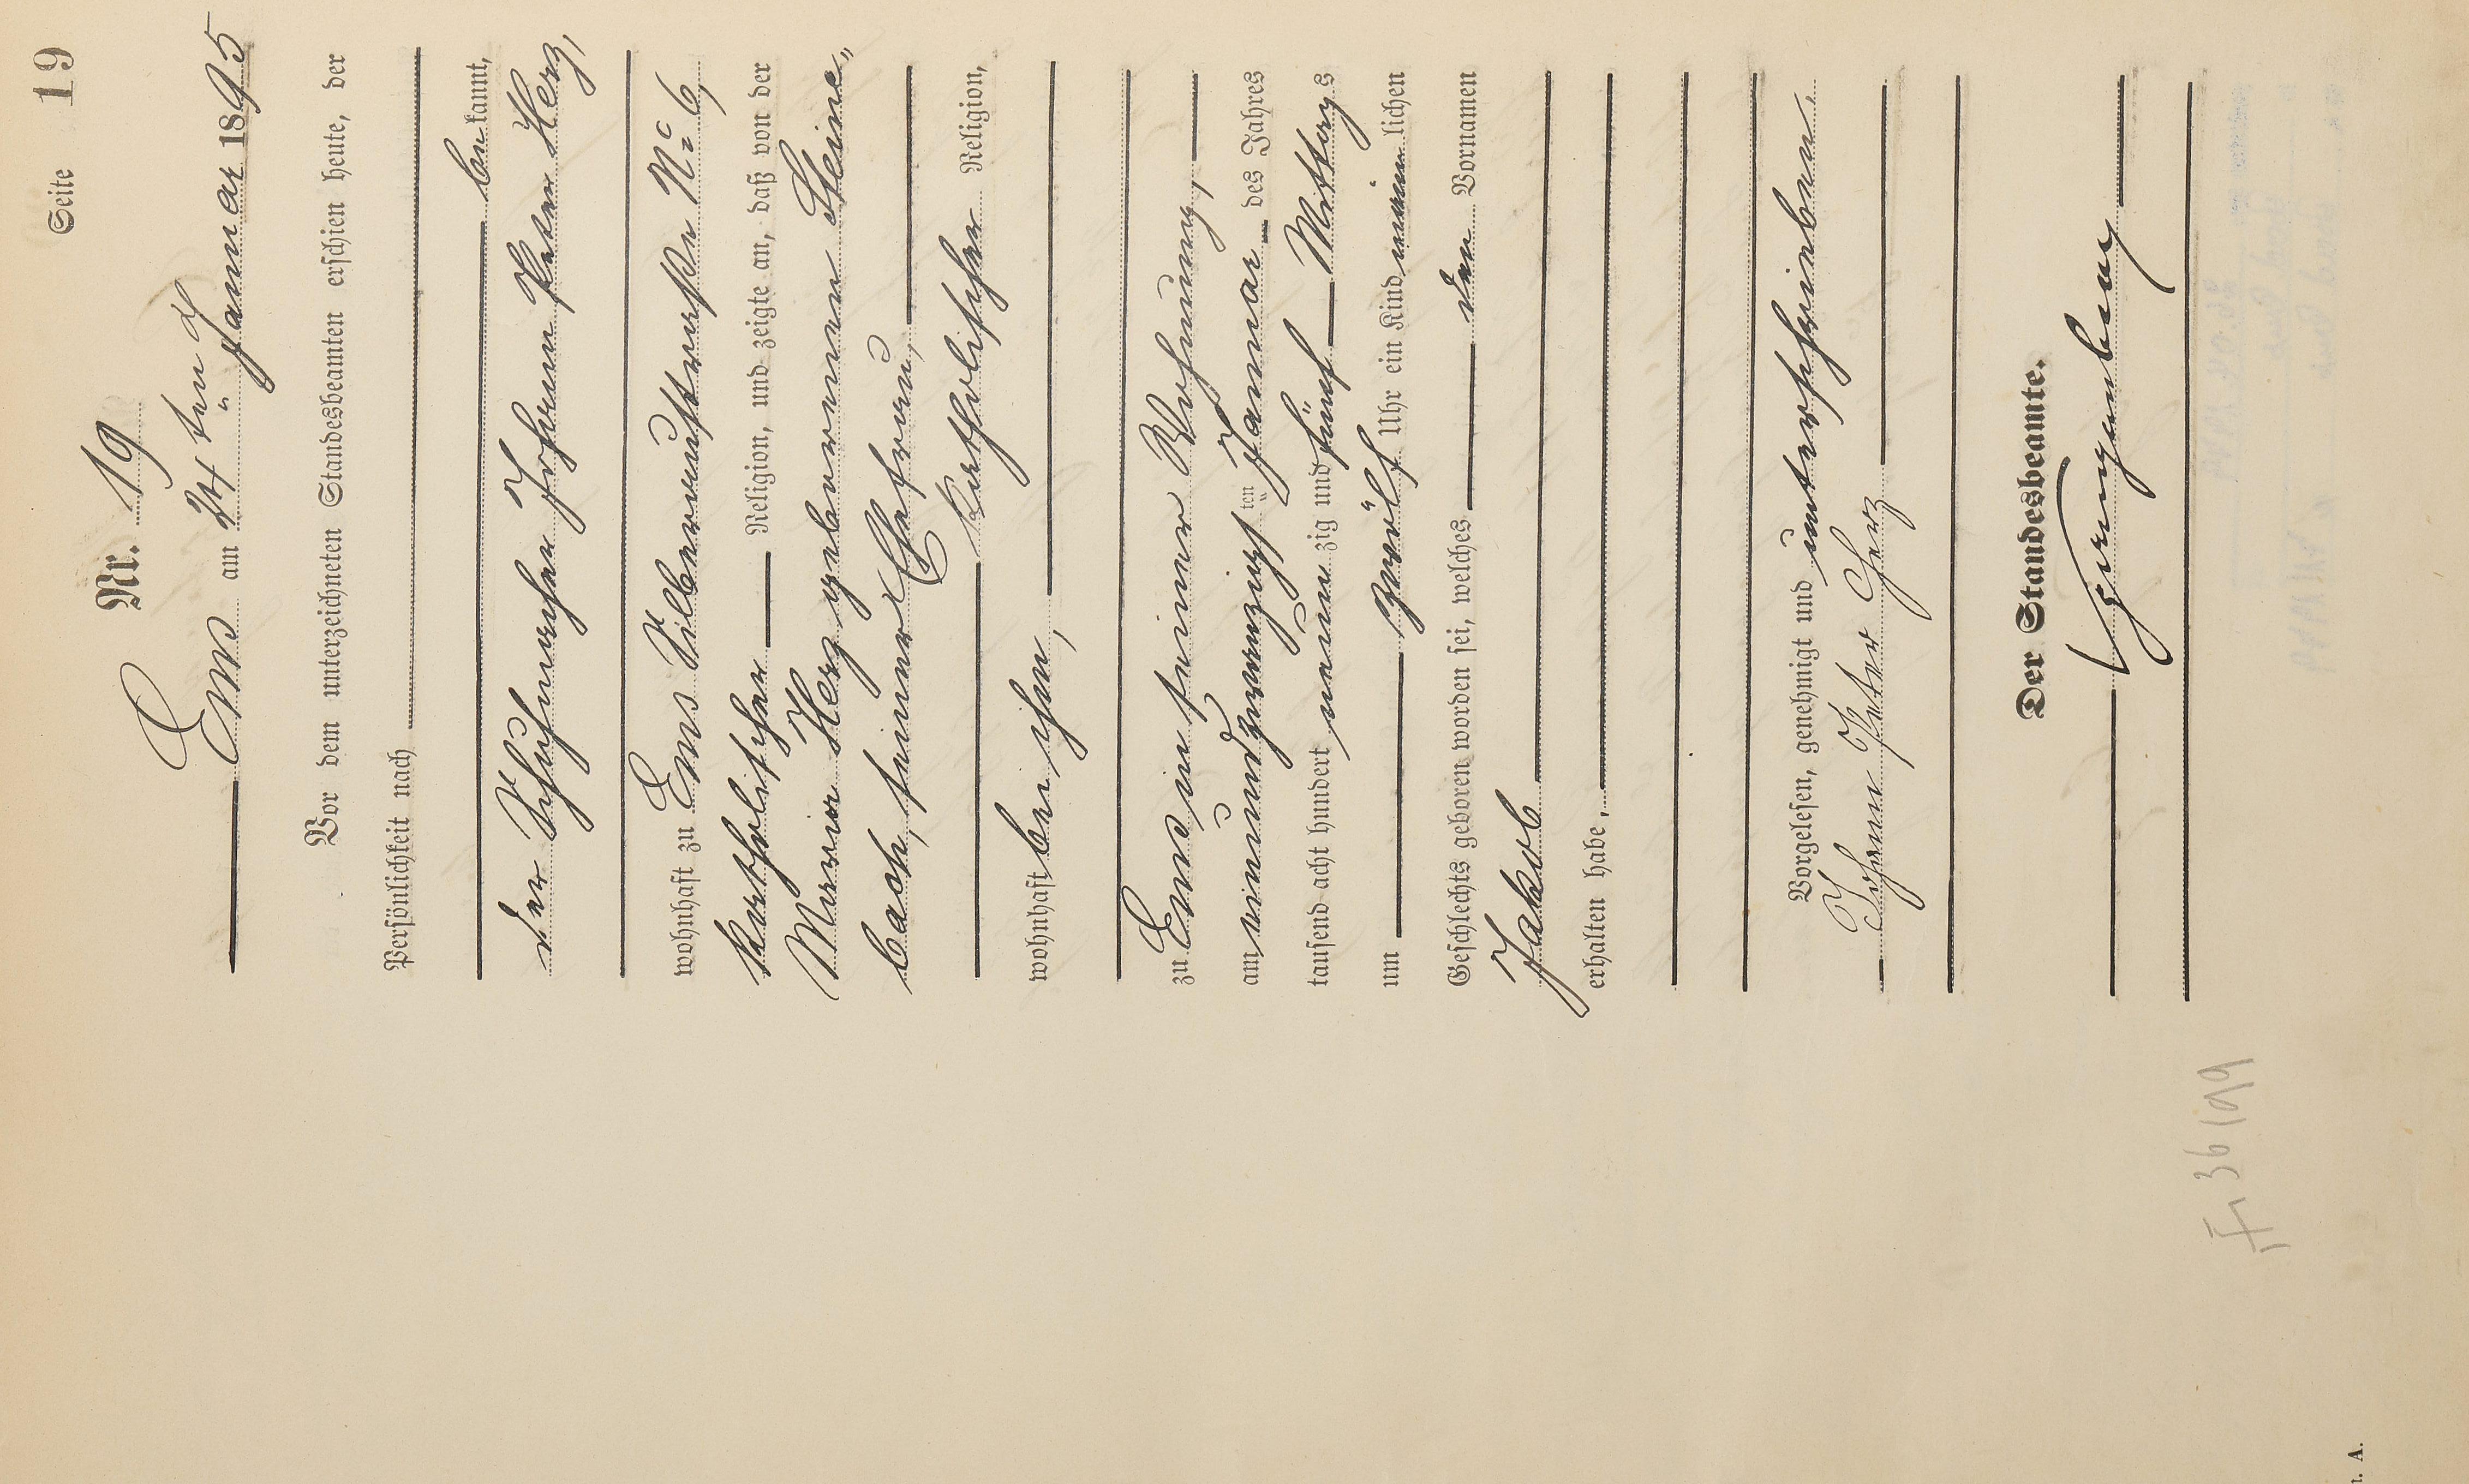 Seite 19
Nr. 19
Ems am 24 ten Januar 1895
Vor dem unterzeichneten Standesbeamten erschien heute, der
Persönlichkeit nach
be kannt,
der Schuhmacher Johann Peter Herz,
wohnhaft zu Ems Silberaustraße No 6,
katholischer Religion, und zeigte an, daß von der
Maria Herz geborenen Steine„
bach, seiner Ehefrau,
katholischer Religion,
wohnhaft bei ihm,
zu Ems in seiner Wohnung,
am einundzwanzigsten Januar des Jahres
tausend acht hundert neun zig und fünf Mittags
um zwölf Uhr ein Kind männ lichen
Geschlechts geboren worden sei, welches den Vornamen
Jakob
erhalten habe,
Vorgelesen, genehmigt und unterschrieben.
Johann Peter Herz
Der Standesbeamte.
F, 36/99
n. A.